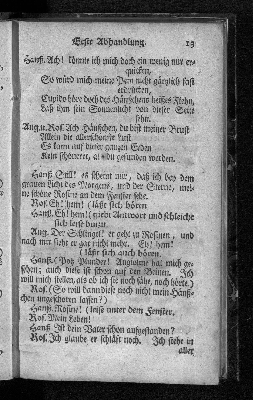 Erste Abhandlung. 19
Hanß. Ach! könte ich mich doch ein wenig nur er-
quicken,
So würd mich meine Pein nicht gäntzlich fast
erdrücken,
Cupido höre doch des Hänßchens heisses Flehn,
Laß ihm sein Sonnenlicht von dieser Seite
sehn.
Aug. u. Ros. Ach Hänßchen, du bist meiner Brust
Allein die allerschönste Lust
Es kann auf dieser gantzen Erden
Kein schönerer, als du gefunden werden.
Hanß. Still! es scheint mir, daß ich bey dem
grauen Licht des Morgens, und der Sterne, mei-
ne schöne Rosine an dem Fenster sehe.
Ros. Eh! hem! (läßt sich hören
Hanß. Eh! hem! (giebt Antwort und schleiche
sich leise hinzu.
Aug. Der Schlingel! er geht zu Rosinen, und
nach mir sieht er gar nicht mehr. Eh! hem!
(läßt sich auch hören.
Hanß. (Potz Plunder! Angiolme hat mich ge-
sehen; auch diese ist schon auf den Beinen. Ich
will mich stellen, als ob ich sie noch sähe, noch hörte.)
Ros. (So will dann diese noch nicht mein Hänß-
chen ungeschoren lassen?)
Hanß. Rosine! (leise unter dem Fenster.
Ros. Mein Leben!
Hanß. Ist dein Vater schon aufgestanden?
Ros. Ich glaube er schläft noch. Ich stehe in
aller